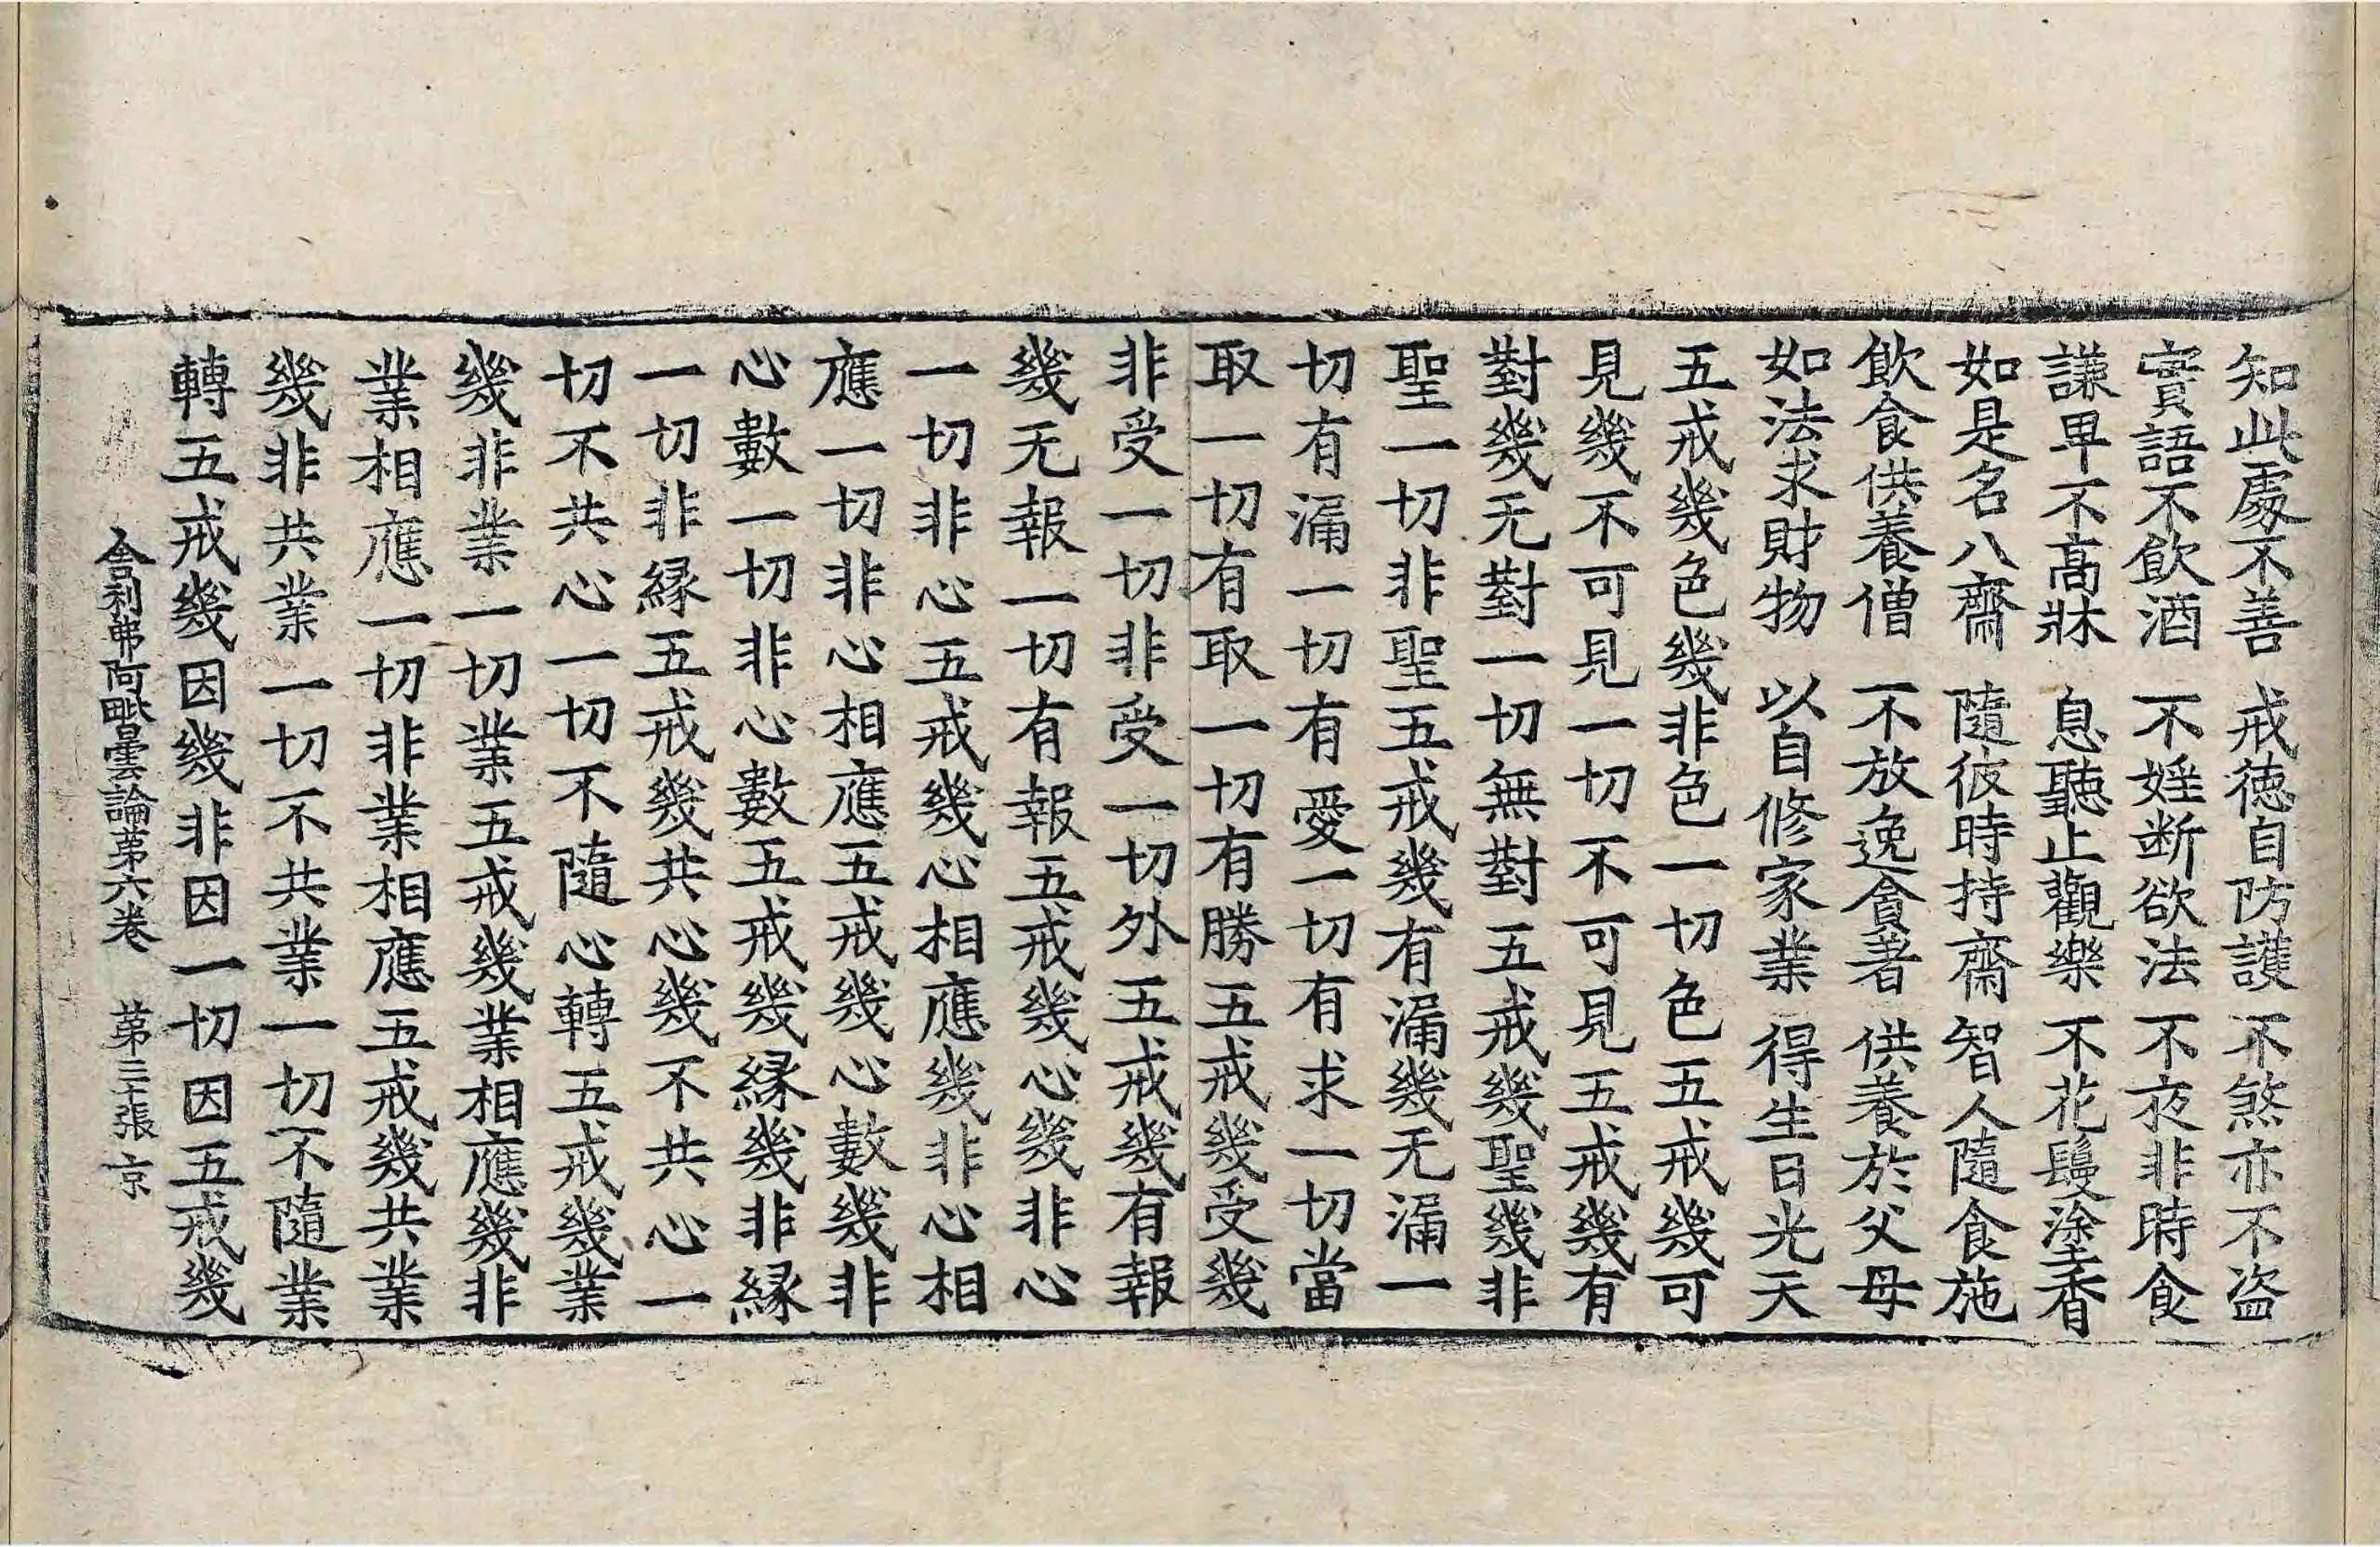 知此處不善　戒德自防護　不煞亦不盜
實語不飲酒　不婬斷欲法　不夜非時食
謙卑不高牀　息聽止觀樂　不花鬘塗香
如是名八齋　隨彼時持齋　智人隨食施
飲食供養僧　不放逸貪著　供養於父母
如法求財物　以自修家業　得生日光天
五戒幾色幾非色一切色五戒幾可
見幾不可見一切不可見五戒幾有
對幾无對一切無對五戒幾聖幾非
聖一切非聖五戒幾有漏幾无漏一
切有漏一切有愛一切有求一切當
取一切有取一切有勝五戒幾受幾
非受一切非受一切外五戒幾有報
幾无報一切有報五戒幾心幾非心
一切非心五戒幾心相應幾非心相
應一切非心相應五戒幾心數幾非
心數一切非心數五戒幾緣幾非緣
一切非緣五戒幾共心幾不共心一
切不共心一切不隨心轉五戒幾業
幾非業一切業五戒幾業相應幾非
業相應一切非業相應五戒幾共業
幾非共業一切不共業一切不隨業
轉五戒幾因幾非因一切因五戒幾
舍利弗阿毗曇論第六卷　第三十張　京